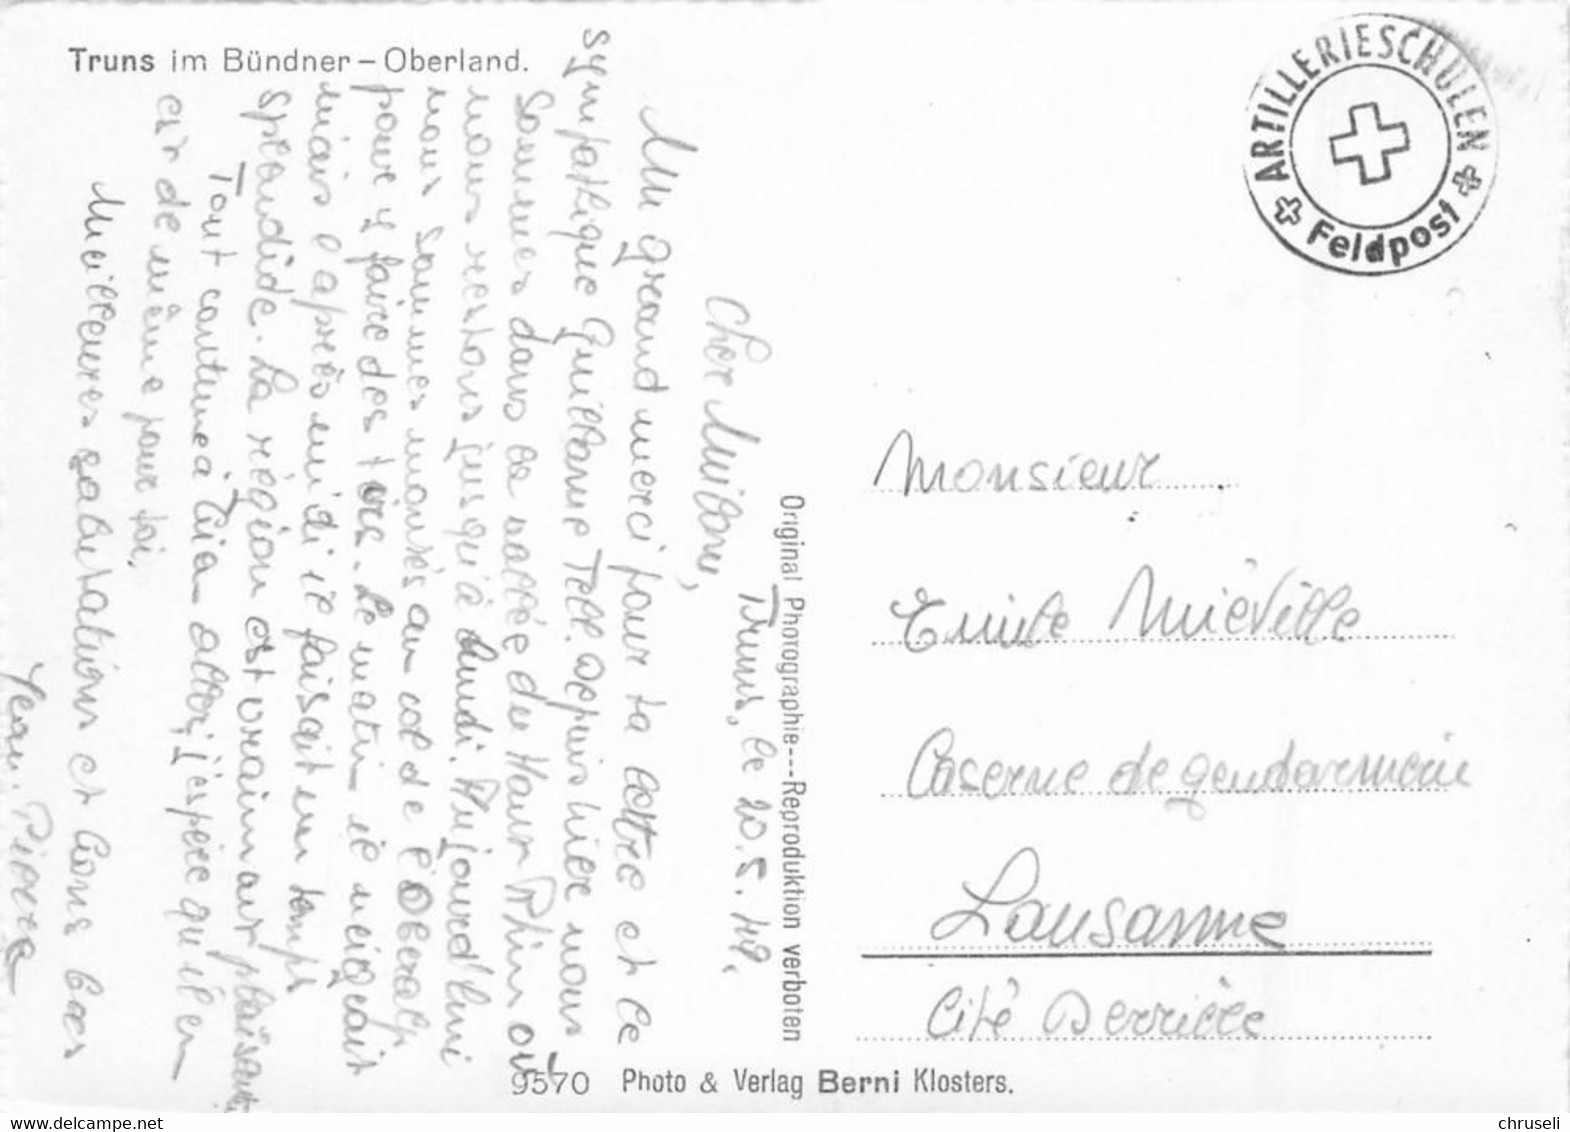 Truns im Bündner – Oberland.
ARTILLERIESCHULEN
Feldpost
Truns, le 20.5.49.
Cher Milou,
Un grand merci pour ta lettre et le
sympathique Guillaume Tell. Depuis hier nous
sommes dans la vallée du Haut Rhin où
nous restons jusqu'à lundi. Aujourd'hui
nous sommes montés au col de l'Oberalp
pour y faire des tirs. Le matin il neigeait
mais l'après midi il faisait un temps
splendide. La région est vraiment plaisante.
Tout continue à bien aller, j'espère qu'il en
est de même pour toi.
Meilleures salutations et bons baisers
Jean-Pierre
Original Photographie---Reproduktion verboten
Monsieur
Emile Miéville
Caserne de gendarmerie
Lausanne
Cité Derrière
9570 Photo & Verlag Berni Klosters.
chruseli